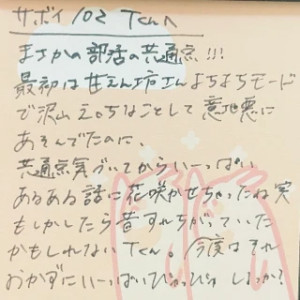 サボイ102 Tくんへ
まさかの部活の共通点!!!
最初は甘えん坊さんよちよちモード
で沢山えっちなことして意地悪に
あそんでたのに、
共通点気づいてからいーっぱい
あるある話に花咲かせちゃったね 実
もしかしたら昔すれちがっていた
かもしれないTくん。今度はそれ
おかずにいーっぱいぴゅっぴゅ しよっか?